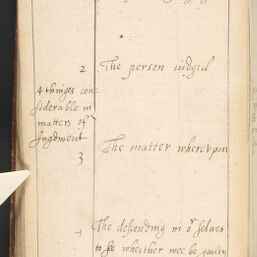 2 The person iudged
4 thinges con
siderable in
matters of
Iugdment
3 The matter wherevpon
4 The descending in or selves
to see wheither wee be guilty